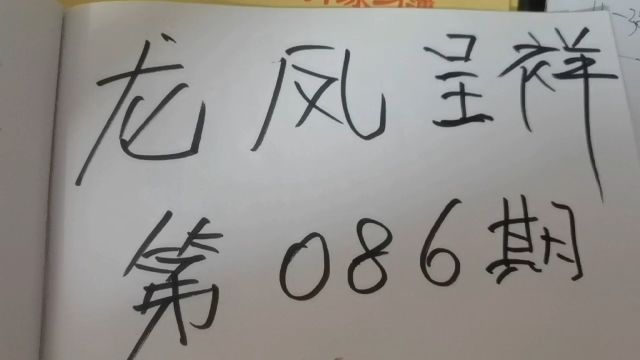 龙凤呈祥
第086期